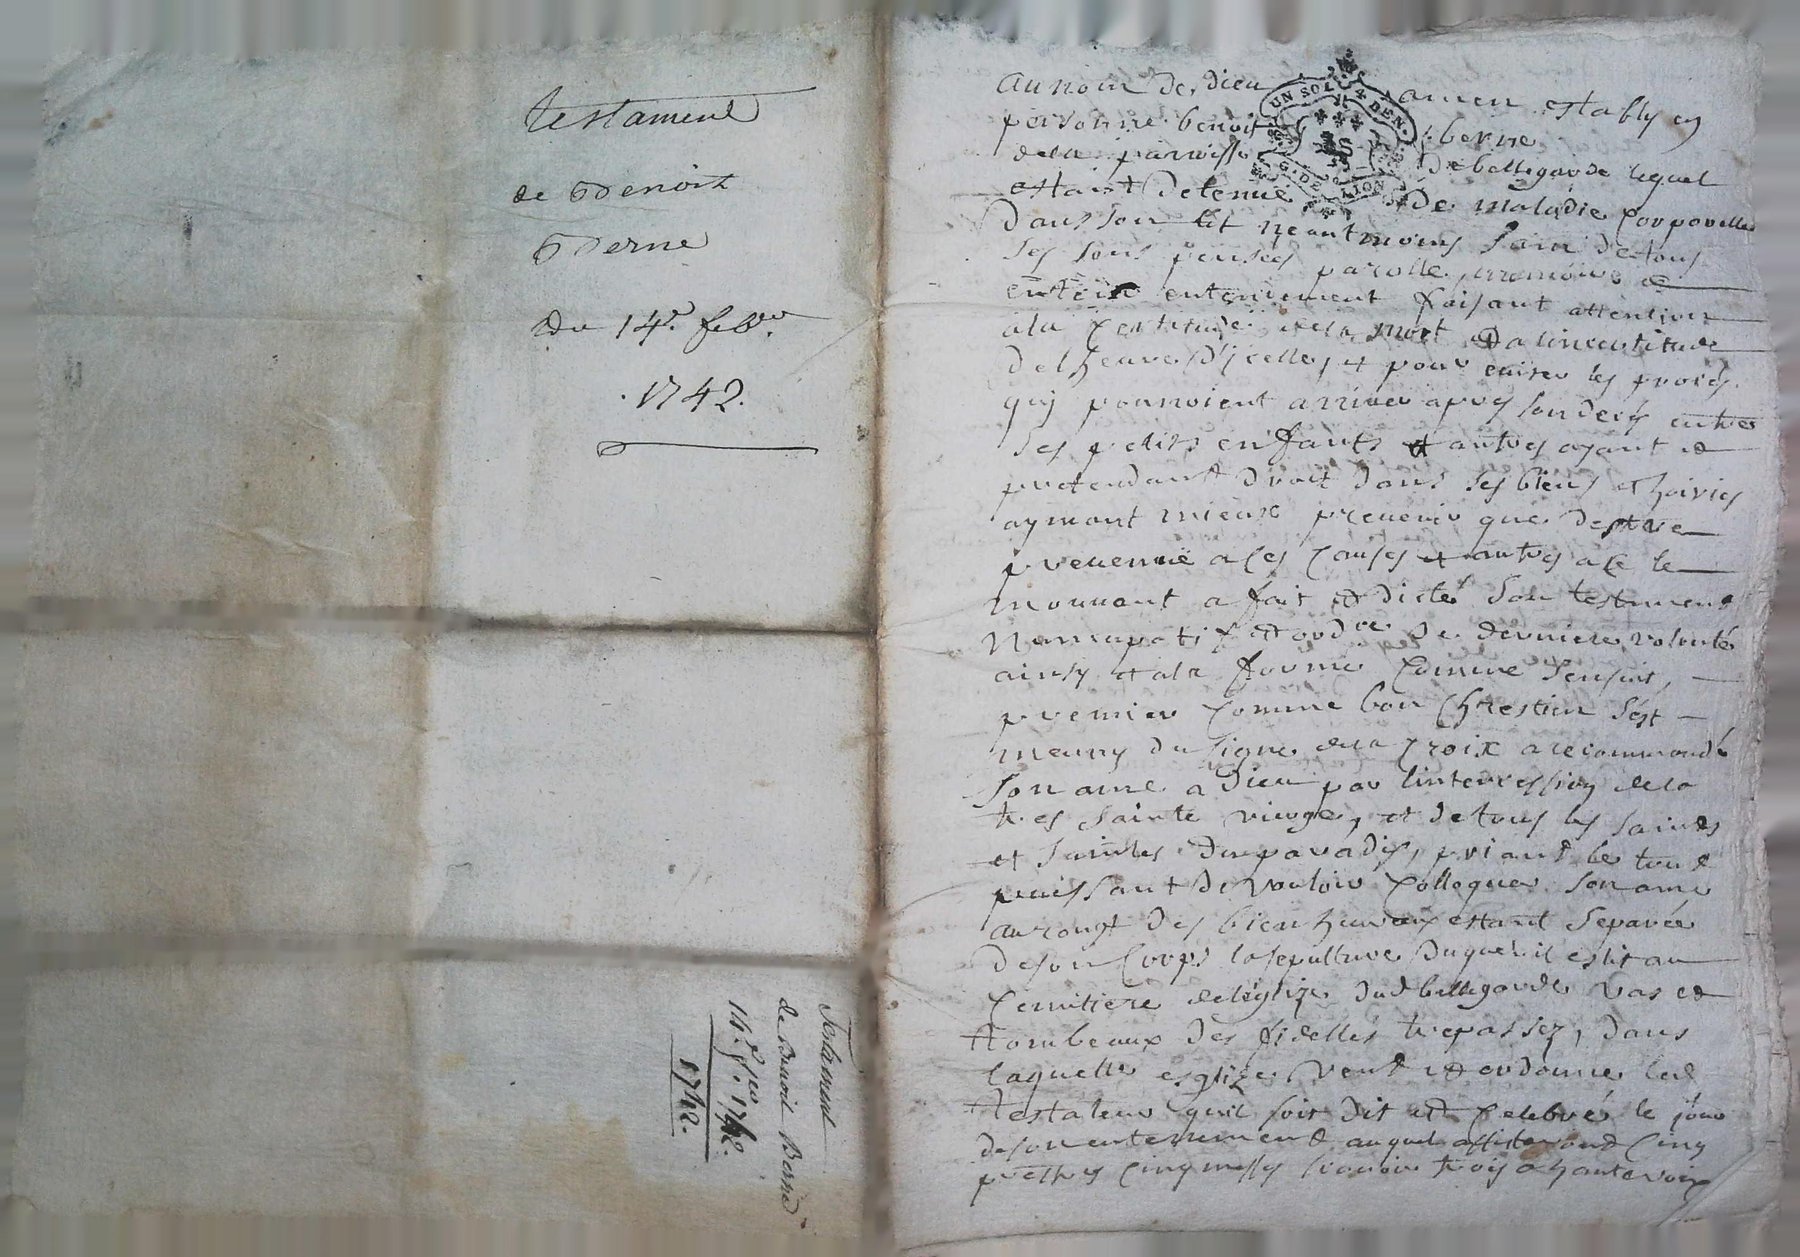 testament
de Benoit
Berne
Du 14e. febvr.
.1742.
Testament
de Benoit Berne
14e. fev. 1742.
1742.
UN SOL 4 DEN.
G. DE LION
au nom de dieu amen estably en
personne benoist berne
de la parroisse de bellegarde lequel
estant detenue de maladie corporelle
dans son lit neantmoins sain de tous
ses sens pensées parolle memoire &
entier entendement faisant attention
a la certitude de la mort et a lincertitude
de lheure d'icelle, et pour eviser les procés
quy pourroient arriver apres son decés entre
ses petits enfants et autres ayant et
pretendant droit dans ses biens et hoiries
aymant mieux prevenir que destre
prevenue a ces causes et autres a ce le
mouvant a fait et dicté son testament
nuncupatif et ordre de derniere volonté
ainsy et a la forme comme sensuit,
premier comme bon Chrestien s'est
meuny du signe de la croix a recommandé
son ame a Dieu par lintercession de la
tres sainte vierge, et de tous les saints
et saintes du paradis, priant le tout
puissant de vouloir colloquer son ame
au rang des bienheureux estant separée
de son corps la sepulture duquel il eslit au
cemitiere de léglize dud bellegarde vas et
tombeaux des fidelles trepassez, dans
laquelle esglize veut et ordonne led
testateur quil soit dit et celebré le jour
de son enterrement auquel assisteront cinq
prestres cinq messes scavoir trois a haute voix